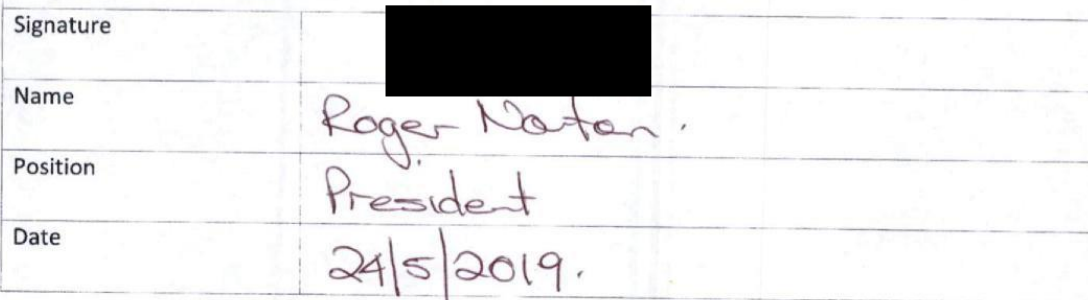 Signature
Name Roger Norton.
Position President
Date 24/5/2019.